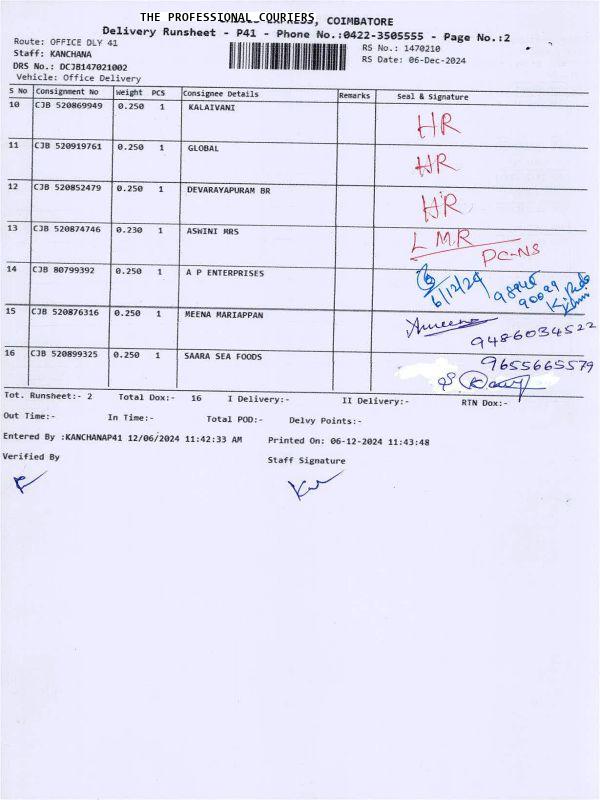 THE PROFESSIONAL COURIERS, COIMBATORE
Delivery Runsheet - P41 - Phone No.:0422-3505555 - Page No.:2
Route: OFFICE DLY 41
Staff: KANCHANA
DRS No.: DCJB147021002
Vehicle: Office Delivery
RS No.: 1470210
RS Date: 06-Dec-2024
S No Consignment No Weight PCS Consignee Details Remarks Seal & Signature
10 CJB 520869949 0.250 1 KALAIVANI HR
11 CJB 520919761 0.250 1 GLOBAL HR
12 CJB 520852479 0.250 1 DEVARAYAPURAM BR HR
13 CJB 520874746 0.230 1 ASWINI MRS LMR
PC-NS
14 CJB 80799392 0.250 1 A P ENTERPRISES 6/12/24
15 CJB 520876316 0.250 1 MEENA MARIAPPAN 9486034522
16 CJB 520899325 0.250 1 SAARA SEA FOODS 9655665579
Tot. Runsheet:- 2 Total Dox:- 16 I Delivery:- II Delivery:- RTN Dox:-
Out Time:- In Time:- Total POD:- Delvy Points:-
Entered By :KANCHANAP41 12/06/2024 11:42:33 AM Printed On: 06-12-2024 11:43:48
Verified By Staff Signature